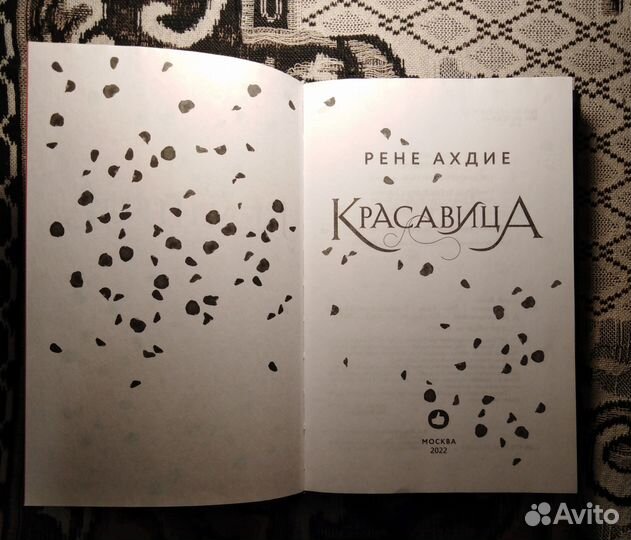 РЕНЕ АХДИЕ
КРАСАВИЦА
МОСКВА
2022
Avito